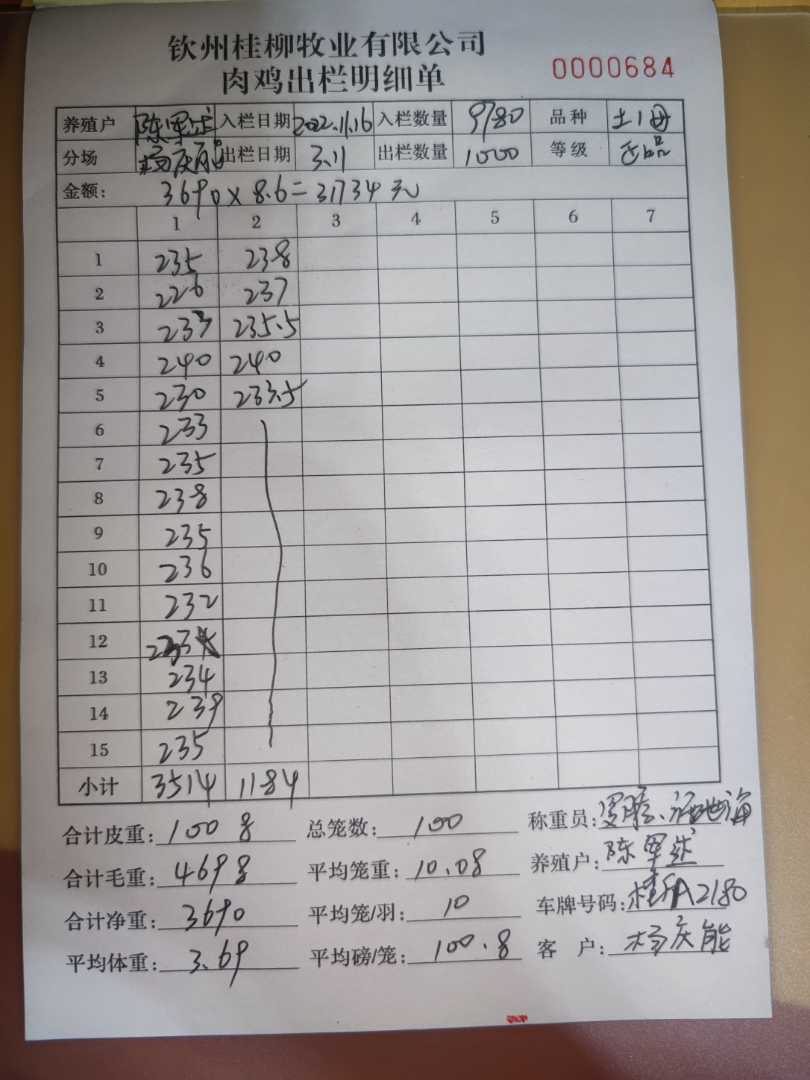 钦州桂柳牧业有限公司
肉鸡出栏明细单 0000684
养殖户 陈军述 入栏日期 2022.11.16 入栏数量 9780 品种 土1母
分场 杨庆能 出栏日期 3.11 出栏数量 1000 等级 正品
金额: 3690×8.6=31734元
1 2 3 4 5 6 7
1 235 238
2 226 237
3 233 235.5
4 240 240
5 230 233.5
6 233
7 235
8 238
9 235
10 236
11 232
12
13 234
14 239
15 235
小计 3514 1184
合计皮重: 1008 总笼数: 100 称重员:
合计毛重: 4698 平均笼重: 10.08 养殖户: 陈军述
合计净重: 3690 平均笼/羽: 10 车牌号码: A2180
平均体重: 3.69 平均磅/笼: 100.8 客 户: 杨庆能